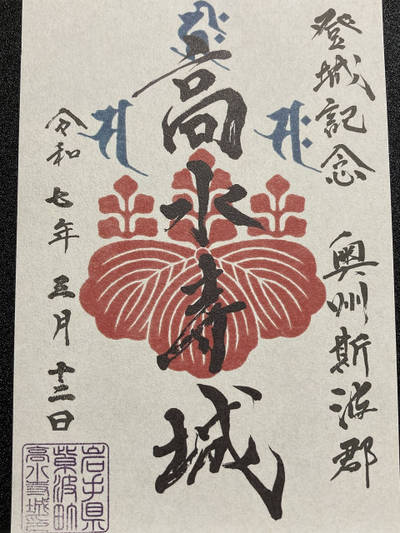 登城記念 奥州斯波郡
高水寺城
令和七年三月十二日
岩手県
紫波町
高水寺城印